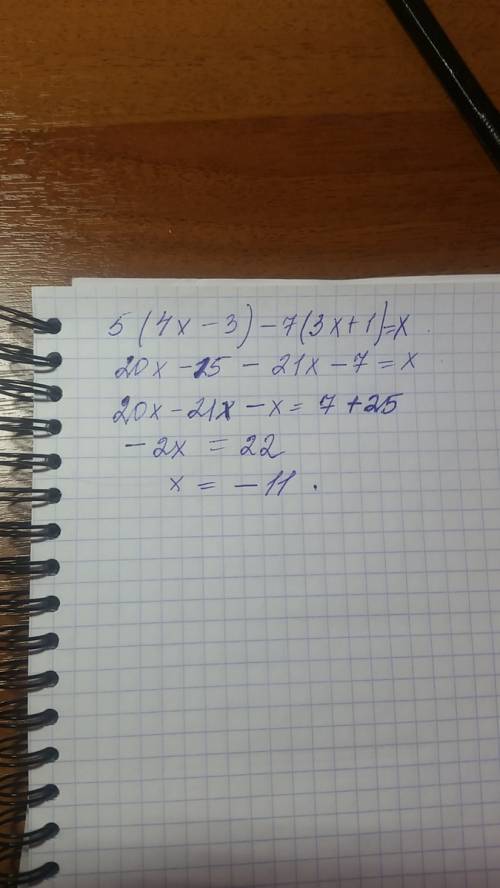 5(4x-3)-7(3x+1)=x.
20x-15-21x-7=x
20x-21x-x=7+25
-2x=22
x=-11.